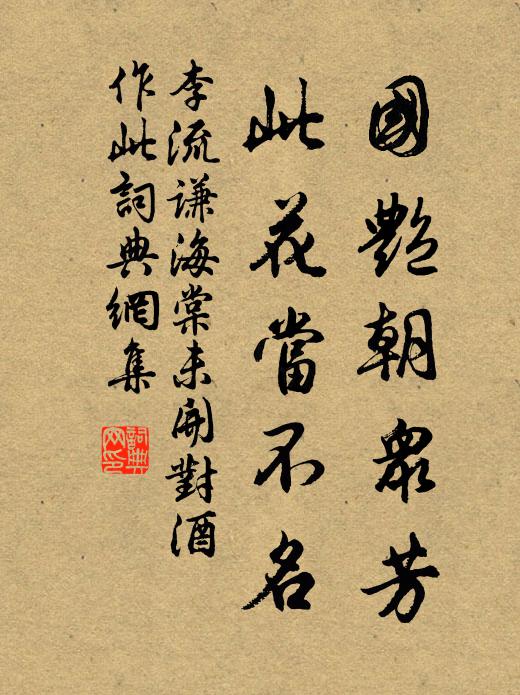 國艷朝眾芳
此花當不名
李流謙海棠未開對酒
作此詞典網集
詞典網印